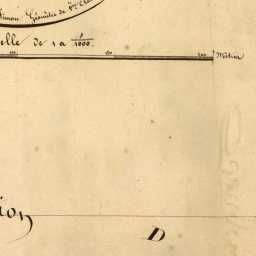 Simon Géomètre de 1ère Cl
elle de 1 a 1/1000.
200 Mètres
ion
D